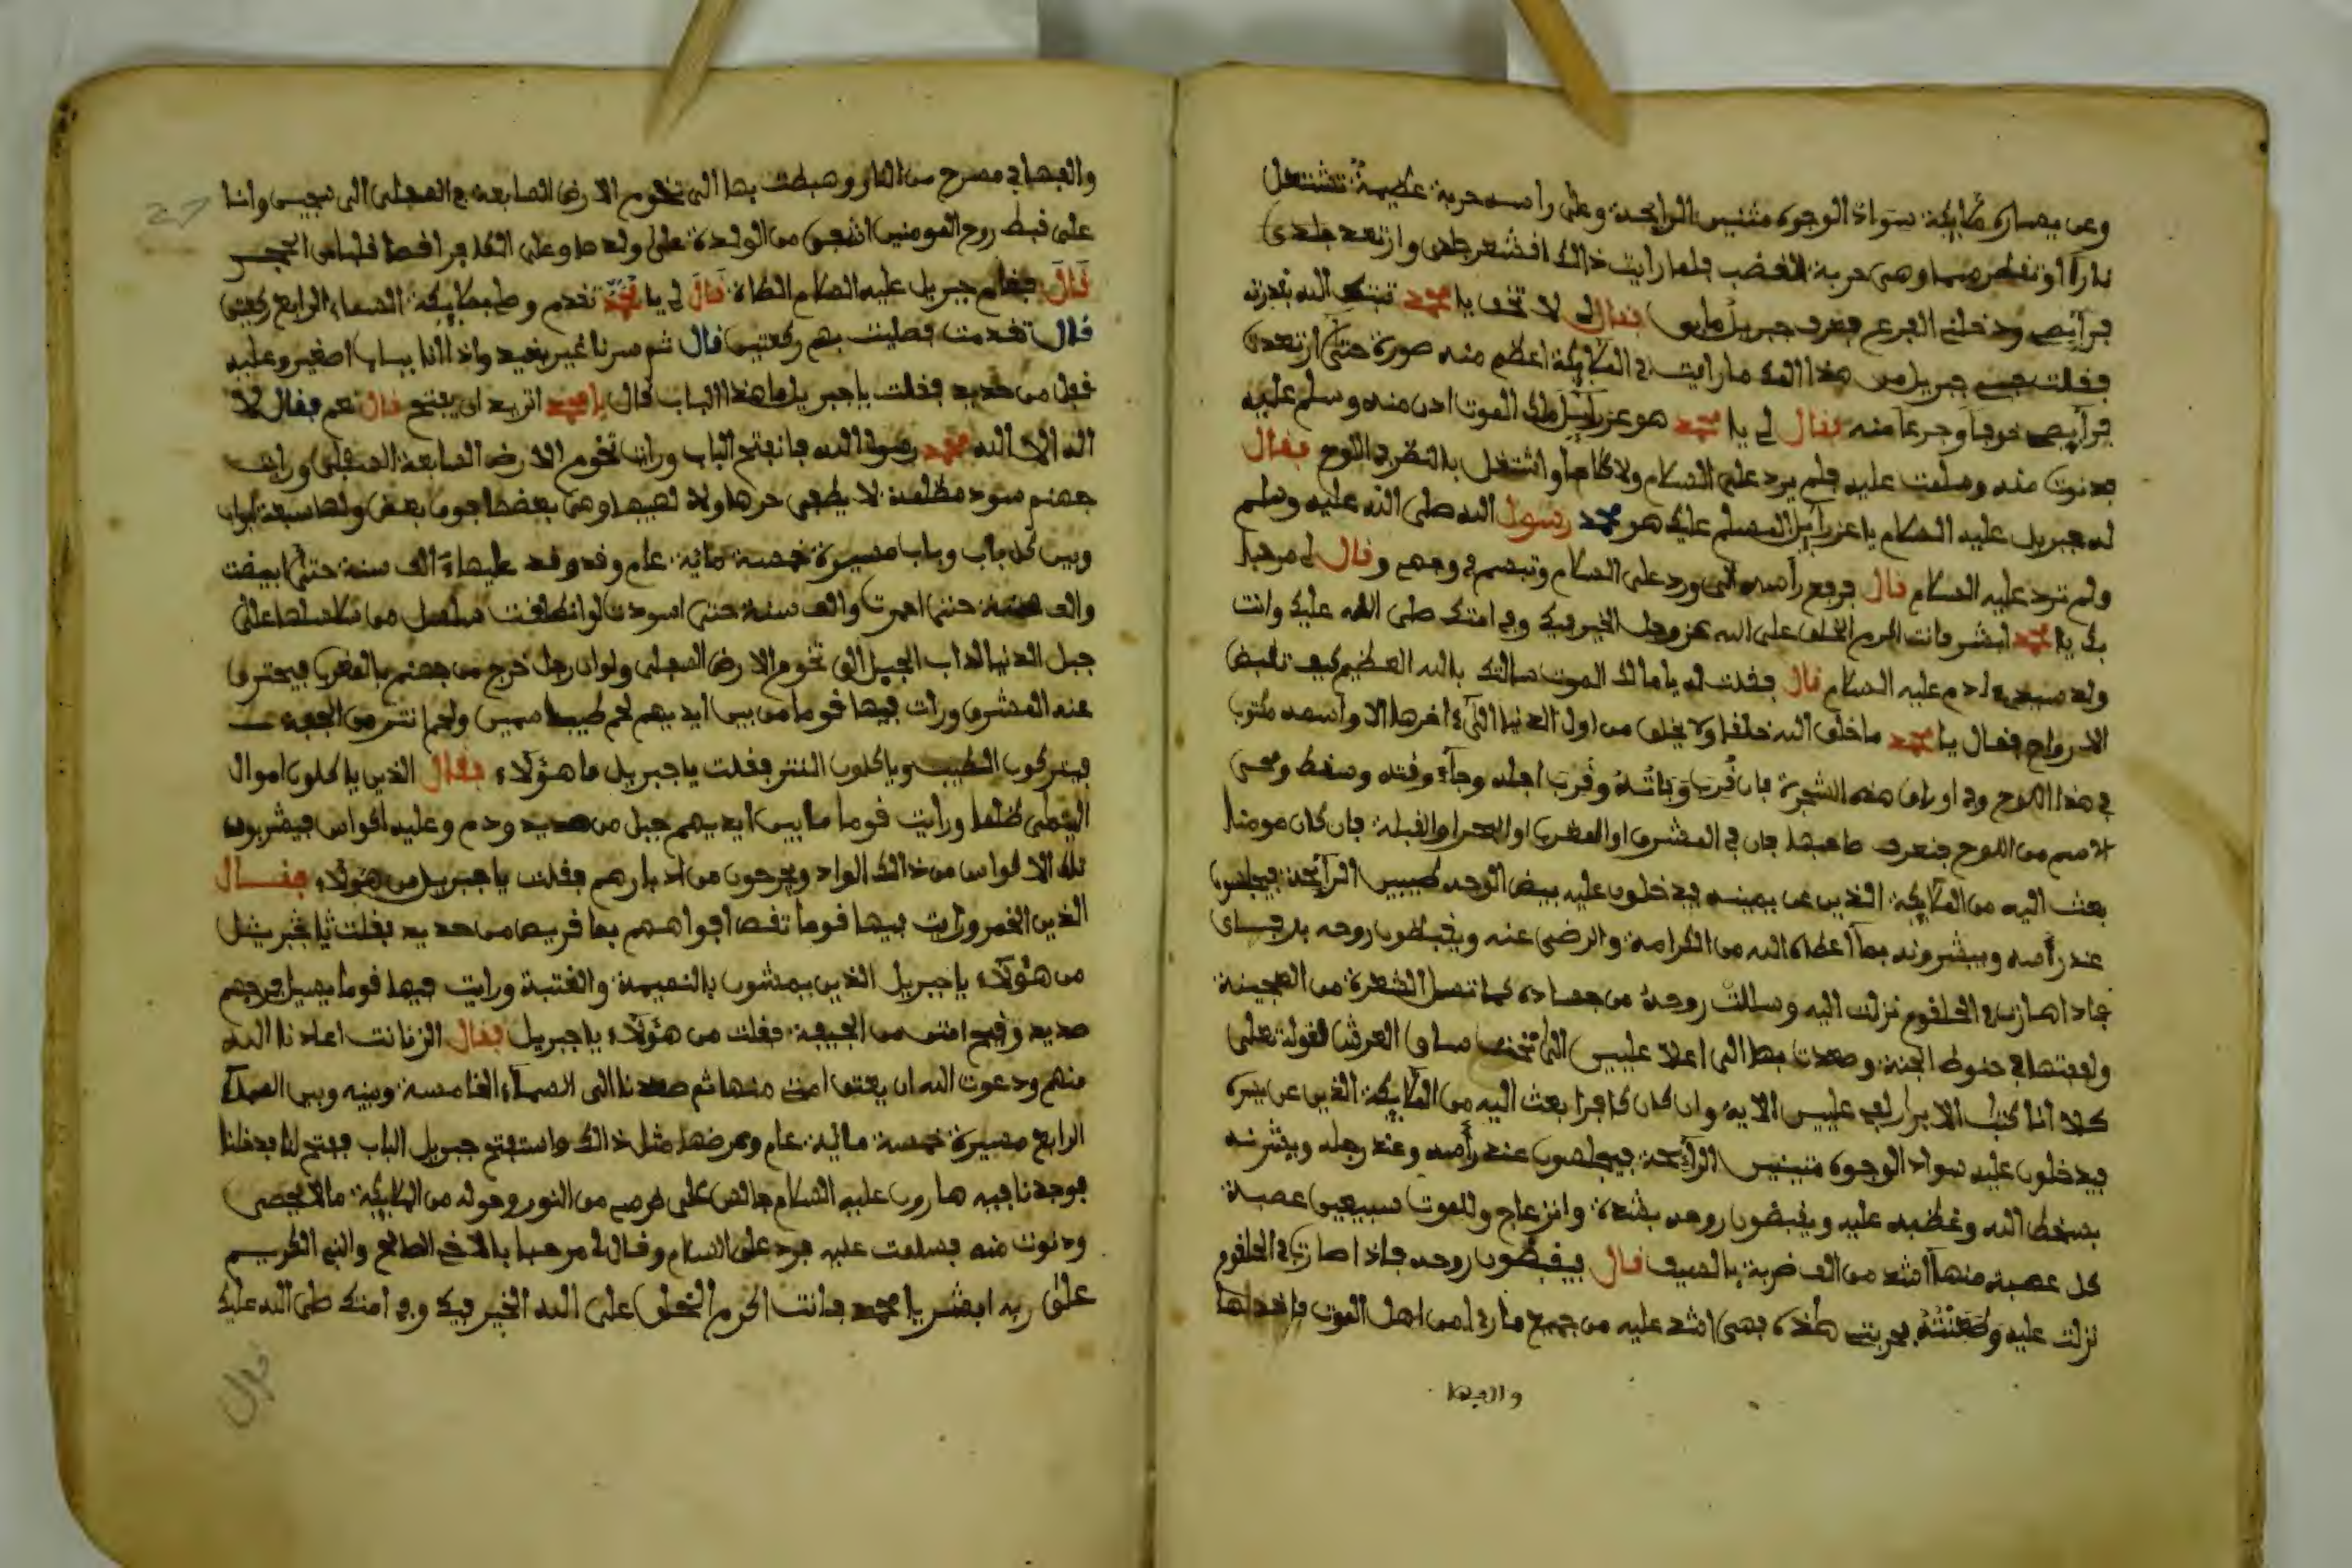 وعن يساره ملايكة سواد الوجوه منتنين الرايحة وعلى راسه حربة عظيمة تشتعل
نارا لو تفطر وهي حربة الغضب فلما رايت ذالك اقشعر جلدي وارتعد جلدي
فرآيصي ودخلني الفزع فعرف جبريل ما بي فقال لي لا تخف يا محمد ثبتك الله بقدرته
فقلت حبيبي جبريل من هذا الملك ما رايت في الملايكة اعظم منه صورة حتى ارتعدت
فرآيصي خوفا وجزعا منه فقال لي يا محمد هو عزرآيل ملك الموت ادن منه وسلم عليه
فدنوت منه وسلمت عليه فلم يرد علي السلام ولا كلاما واشتغل بالنظر في اللوح فقال
له جبريل عليه السلام يا عزرآيل المسلم عليك هو محمد رسول الله صلى الله عليه وسلم
ولم ترد عليه السلام قال فرفع رأسه الي ورد علي السلام وتبسم في وجهي وقال لي مرحبا
بك يا محمد ابشر فانت اكرم الخلق على الله عز وجل الخير فيك وفي امتك صلى الله عليك وانت
ولد سيدي ادم عليه السلام قال فقلت له يا مالك الموت سالتك بالله العظيم كيف تقبض
الارواح فقال يا محمد ما خلق الله خلقا ولا يخلق من اول الدنيا الى اخرها الا واسمه مكتوب
في هذا اللوح وفي اوراق هذه الشجرة فان قرب وفاته وقرب اجله وجآء وقته وسقط ومحي
الاسم من اللوح فنعرف صاحبها فان في المشرق او المغرب او البحر او القبلة فان كان مومنا
بعث اليه من الملايكة الذين عن يمينه فيدخلون عليه بيض الوجه طيبين الرآيحة فيجلسون
عند رأسه ويبشرونه بمآ اعطاه الله من الكرامة والرضى عنه ويقبضون روحه
فاذا صارت في الحلقوم نزلت اليه وسللت روحه من جسده كما تسل الشعرة من العجينة
ولففتها في حنوط الجنة وصعدت بها الى اعلا عليين الى تحت ساق العرش لقوله تعلى
كلا انا كتاب الابرار لفي عليين الاية وان كان كافرا بعث اليه من الملايكة الذين عن يسره
فيدخلون عليه سواد الوجوه منتنين الرآيحة فيجلسون عند رأسه وعند رجله ويبشرنه
بسخط الله وغظبه عليه ويقبضون روحه بشدة وانزعاج وللموت سبعين عصبة
كل عصبة منهآ اشد من الف ضربة بالسيف قال فيقبضون روحه فاذا صارت في الحلقوم
نزلت عليه وطعنته بحربتي هذه فهي اشد عليه من جميع ما رءا من اهل الموت فاخذها
والفها
والفها في مسرح من النار وهبطت بها الى تخوم الارض السابعة السفلى الى سجين وانا
على قبط روح المومنين اشفق من الولدة على ولدها وعلى الكافر
قال فقام جبريل عليه السلام الصلاة قال لي يا محمد تقدم وصل بملايكة السماء الرابع ركعتين
قال تقدمت فصليت بهم ركعتين قال ثم سرنا غير بعيد واذا انا بباب اصغير وعليه
قفل من حديد فقلت يا جبريل ما هذا الباب قال يا محمد اتريد ان يفتح قال نعم فقال لا
اله الا الله محمد رسول الله فانفتح الباب ورايت تخوم الارض السابعة السفلى ورايت
جهنم سود مظلمة لا يطفى حرها ولا لهيبها وهي بعضها فوق بعض ولها سبعة ابواب
وبين كل باب وباب مسيرة خمسة ماية عام وقد وقد عليها الف سنة حتى ابيضت
والف سنة حتى احمرت والف سنة حتى اسودت لو انطلقت سلسل من سلاسلها على
جبل الدنيا لذاب الجبل الى تخوم الارض السفلى ولو ان رجل خرج من جهنم بالمغرب فيحترق
عنه المشرق ورايت فيها قوما من بين ايديهم لحم طيب سمين ولحم انتن من الجيفة
فيتركون الطيب وياكلون النتن فقلت يا جبريل ما هؤلاء فقال الذين ياكلون اموال
اليتمى ظلما ورايت قوما ما بين ايديهم جبل من صديد ودم وعليه اقواس فيشربون
تلك الاقواس من ذالك الواد ويخرجون من ادبارهم فقلت يا جبريل من هؤلاء فقال
الذين الخمر ورايت فيها قوما تقص افواههم بمقاريص من حديد فقلت يا جبريل
من هؤلاء يا جبريل الذين يمشون بالنميمة والغتبة ورايت فيها قوما يسيل فرجهم
صديد وقيح انتن من الجيفة فقلت من هؤلاء يا جبريل فقال الزنات اعاذنا الله
منهم ودعوت الله ان يعتق امتي منها ثم صعدنا الى السمآء الخامسة وبينه وبين السمآء
الرابع مسيرة خمسة ماية عام وعرضها مثل ذالك واستفتح جبريل الباب ففتح لنا فدخلنا
فوجدنا فيه هارون عليه السلام جالس على كرسي من النور وحوله من الملايكة مالا يحصى
ودنوت منه فسلمت عليه فرد علي السلام وقال لي مرحبا بالاخ الصالح والنبي الكريم
على ربه ابشر يا محمد فانت اكرم الخلق على الله الخير فيك وفي امتك صلى الله عليك
قال